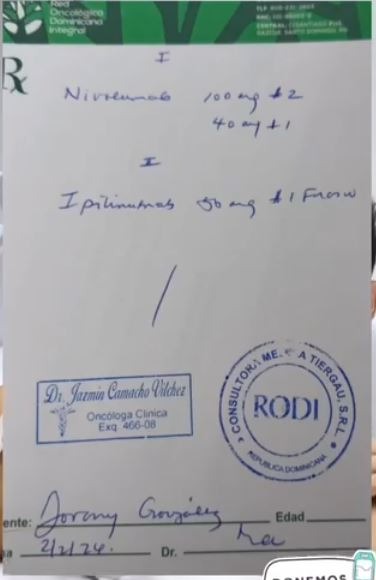 Red
Oncológica
Dominicana
Integral
I
Nivolumab 100 mg #2
40 mg #1
II
Ipilimumab 50 mg #1 Frasco
Dr. Jazmín Camacho Vilchez
Oncóloga Clínica
Exq. 466-08
CONSULTORA MEDICA TIERGAU, S.R.L.
RODI
REPUBLICA DOMINICANA
ente: González Edad
2/2/24. Dr.
PONEMOS